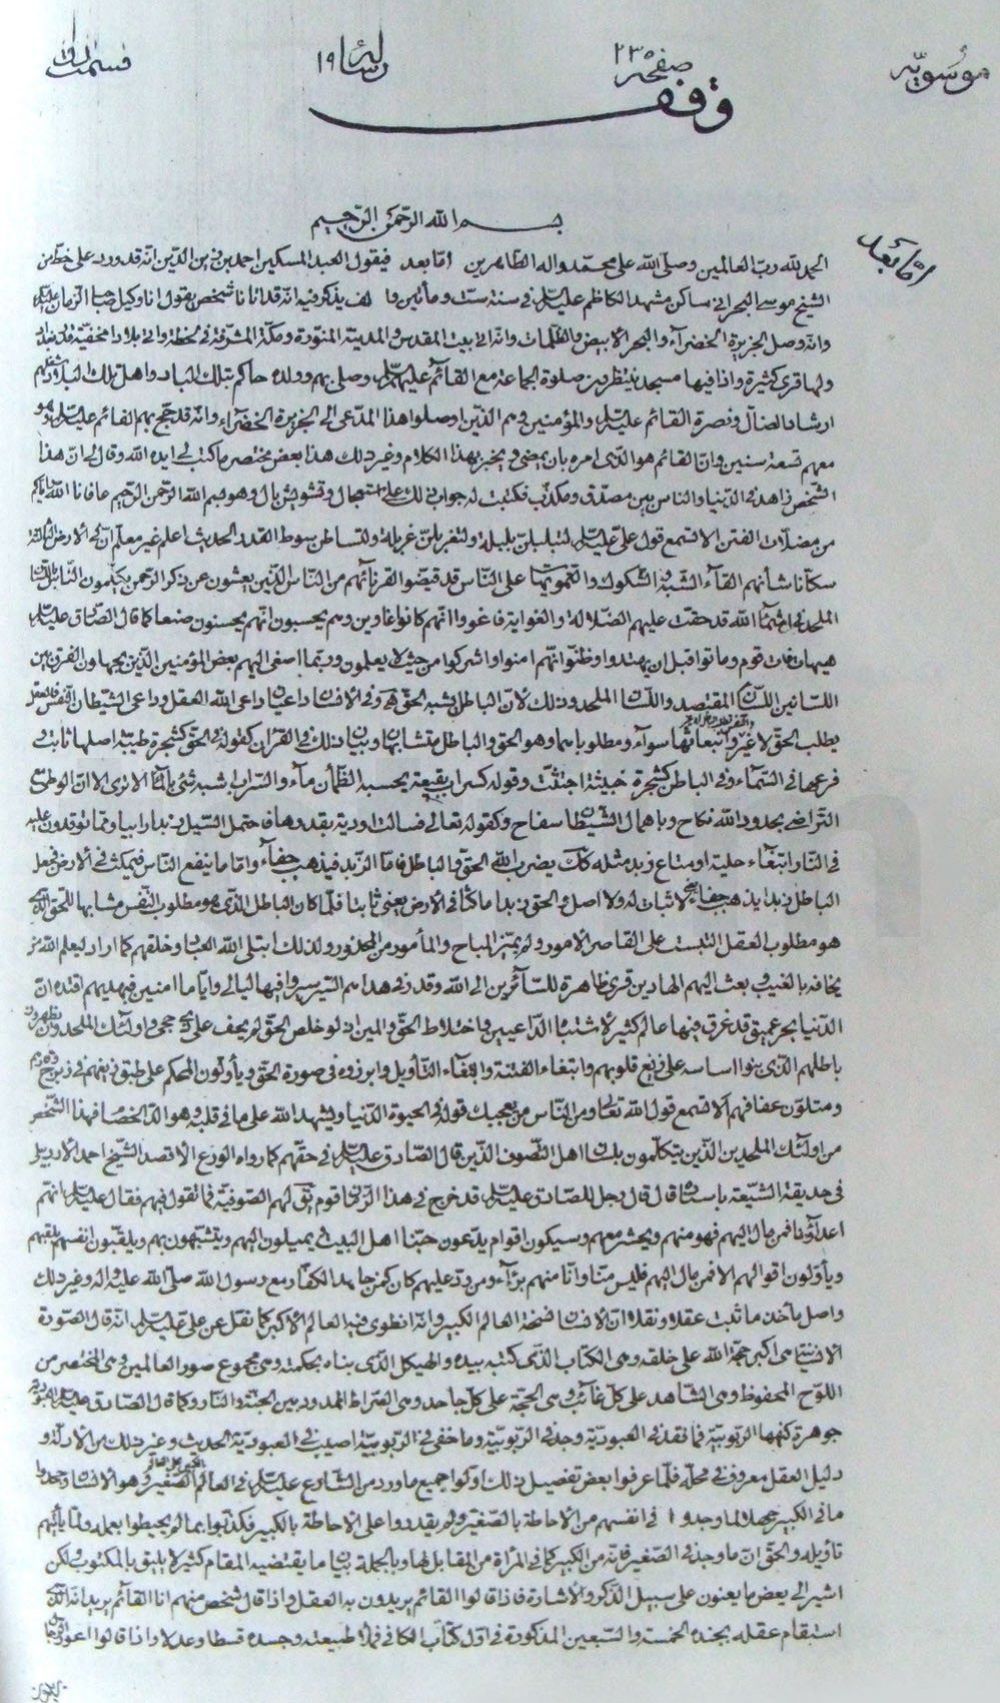 موسويّه صفحه ٢٣٠ رساله ١٩ قسمت
وقف
بسم الله الرّحمن الرّحيم
امّا بعد
الحمد لله ربّ العالمين وصلّى الله على محمّد واله الطّاهرين امّا بعد فيقول العبد المسكين احمد بن زين الدّين انّه قد ورد علىّ خطّ من
الشّيخ موسى البحرانى ساكن مشهد الكاظم عليه السّلام فى سنة ستّ ومأتين والف يذكر فيه انّه قد اتانا شخص يقول انا وكيل صاحب الزّمان عليه السّلام
وانّه وصل الجزيرة الخضرآء والبحر الابيض والظّلمات وانّه اتى بيت المقدس والمدينة المنوّرة ومكّة المشرّفة فى لحظة واتى بلادا مخفيّة
ولها قرى كثيرة واذا فيها مسجد ينتظرون صلوة الجماعة مع القآئم عليه السّلام وصلّى بهم وولده حاكم بتلك البلاد واهل تلك البلاد شغلهم
ارشاد الضّالّ ونصرة القائم عليه السّلام والمؤمنين وهم الّذين اوصلوا هذا المدّعى الى الجزيرة الخضرآء وانّه قد حجّ بهم القائم عليه السّلام وهو
معهم تسعة سنين وانّ القائم هو الّذى امره بان يمضى ويخبر بهذا الكلام وغير ذلك هذا بعض مختصر ما كتب لى ايده الله وقال لى انّ هذا
الشّخص زاهد فى الدّنيا والنّاس بين مصدّق ومكذّب فكتبت له جوابى ذلك على استعجال وتشويش بال وهو بسم الله الرّحمن الرّحيم عافانا الله وايّاكم
من مضلّات الفتن الا تسمع قول علىّ عليه السّلام لتبلبلنّ بلبلة ولتغربلنّ غربلة ولتساطنّ سوط القدر الحديث اعلم غير معلّم انّ فى الارض الثالثة
سكّانا شأنهم القآء الشّبه والشّكوك والتّمويهات على النّاس قد قيّضوا القرنآئهم من النّاس الّذين يعشون عن ذكر الرحمن يكلّمون النّاس بلسان
الملحد فى اسمآء الله قد حقّت عليهم الضّلالة والغواية فاغووا انّهم كانوا غاوين وهم يحسبون انّهم يحسنون صنعا كما قال الصّادق عليه السّلام
هيهات فات قوم وماتوا قبل ان يهتدوا وظنّوا انّهم امنوا واشركوا من حيث لا يعلمون وربّما اصغى اليهم بعض المؤمنين الّذين يجهلون الفرق بين
اللّسانين اللّسان المقتصد واللّسان الملحد وذلك لانّ الباطل يشبه الحقّ وفى الانسان داعيان داعى الله العقل وداعى الشّيطان النّفس فالعقل
يطلب الحقّ لا غير وتبعاتها سوآء ومطلوباهما وهو الحقّ والباطل متشابهان وبيان ذلك فى القرآن كقوله فى الحقّ كشجرة طيّبة اصلها ثابت و
فرعها فى السّمآء وفى الباطل كشجرة خبيثة اجتثّت وقوله كسراب بقيعة يحسبه الظّمأن مآء والسّراب اشبه شئ بالمآء الا ترى الا انّ الوطى مع
التّراضى بحدود الله نكاح وباهمال الشّيطان سفاح وكقوله تعالى فسالت اودية بقدرها فاحتمل السّيل زبدا رابيا وممّا توقدون عليه
فى النّار ابتغآء حلية او متاع زبد مثله كذلك يضرب الله الحقّ والباطل فامّا الزّبد فيذهب جفآء وامّا ما ينفع النّاس فيمكث فى الارض فجعل
الباطل زبدا يذهب جفاء اى لا ثبات له ولا اصل والحقّ زبدا ماكثا فى الارض يعنى ثابتا فلمّا كان الباطل الّذى هو مطلوب النّفس مشابها للحقّ الّذى
هو مطلوب العقل التبست على القاصر الامور ولم يميّز المباح والمأمور من المحذور ولذلك ابتلى الله العباد وخلقهم كما اراد ليعلم الله من
يخافه بالغيب وبعث اليهم الهادين قرى ظاهرة للسّآئرين الى الله وقدر فى هداهم السّير سيروا فيها ليالى وايّاما امنين فبهديهم اقتده انّ
الدّنيا بحر عميق قد غرق فيها عالم كثير لاشتباه الدّاعيين واختلاط الحقّ والمين اذ لو خلص الحقّ لم يخف على ذى حجى واولئك الملحدون يظهرون
باطلهم الّذى بنوا اساسه على زيغ قلوبهم وابتغاء الفتنة وابتغآء التّأويل وابرزوه فى صورة الحقّ ويأوّلون المحكم على طبق زيغهم
ومتلوّن عفافهم الا تسمع قول الله تعالى ومن النّاس من يعجبك قوله فى الحيوة الدّنيا ويشهد الله على ما فى قلبه وهو الدّ الخصام فهذا الشّخص
من اولئك الملحدين الّذين يتكلّمون بلسان اهل التّصوّف الّذين قال الصّادق عليه السّلام فى حقّهم كما رواه الورع الاقصد الشّيخ احمد الاردبيلى
فى حديقة الشّيعة باسناده قال قال رجل للصّادق عليه السّلام قد خرج فى هذا الزّمان قوم يقال لهم الصّوفيّة فما تقول فيهم فقال عليه السّلام انّهم
اعدآؤنا فمن مال اليهم فهو منهم ويحشر معهم وسيكون اقوام يدّعون حبّنا اهل البيت ويميلون اليهم ويتشبّهون بهم ويلقّبون انفسهم بلقبهم
ويأوّلون اقوالهم الا فمن مال اليهم فليس منّا وانّا منهم برآء ومن ردّ عليهم كان كمن جاهد الكفّار مع رسول الله صلّى الله عليه واله وغير ذلك
واصل مأخذه ما ثبت عقلا ونقلا انّ الانسان نسخة العالم الكبير وانّه انطوى فيه العالم الاكبر كما نقل عن علىّ عليه السّلام انّه قال الصّورة
الانسانيّة هى اكبر حجّة الله على خلقه وهى الكتاب الّذى كتبه بيده والهيكل الّذى بناه بحكمته وهى مجموع صور العالمين وهى المختصر من
اللّوح المحفوظ وهى الشّاهد على كلّ غائب وهى الحجّة على كلّ جاحد وهى الصّراط الممدود بين الجنّة والنّار وكما قال الصّادق عليه السّلام العبوديّة
جوهرة كنهها الرّبوبيّة فما فقد فى العبوديّة وجد فى الرّبوبيّة وما خفى فى الرّبوبيّة اصيب فى العبوديّة الحديث وغير ذلك من الادلّة و
دليل العقل معروف فى محلّه فلمّا عرفوا بعض تفصيل ذلك اوّلوا جميع ما ورد من الشّارع عليه السّلام فى العالم الصّغير وهو الانسان وجحدوا
ما فى الكبير جهلا لما وجدوا فى انفسهم من الاحاطة بالصّغير ولم يقدروا على الاحاطة بالكبير فكذّبوا بما لم يحيطوا بعلمه ولمّا يأتهم
تأويله والحقّ انّ ما وجد فى الصّغير فانّه من الكبير كما فى المرآة من المقابل لها وبالجملة بيان ما يقتضيه المقام كثير لا يليق بالمكتوب ولكن
اشير الى بعض ما يعنون على سبيل الذّكر والاشارة فاذا قالوا القائم يريدون به العقل واذا قال شخص منهم انا القآئم يريد انّه الّذى
استقام عقله بجنده الخمسة والسّبعين المذكورة فى اوّل كتاب الكافى فملأ طبيعته وجسده قسطا وعدلا واذا قالوا اعور الدجّال